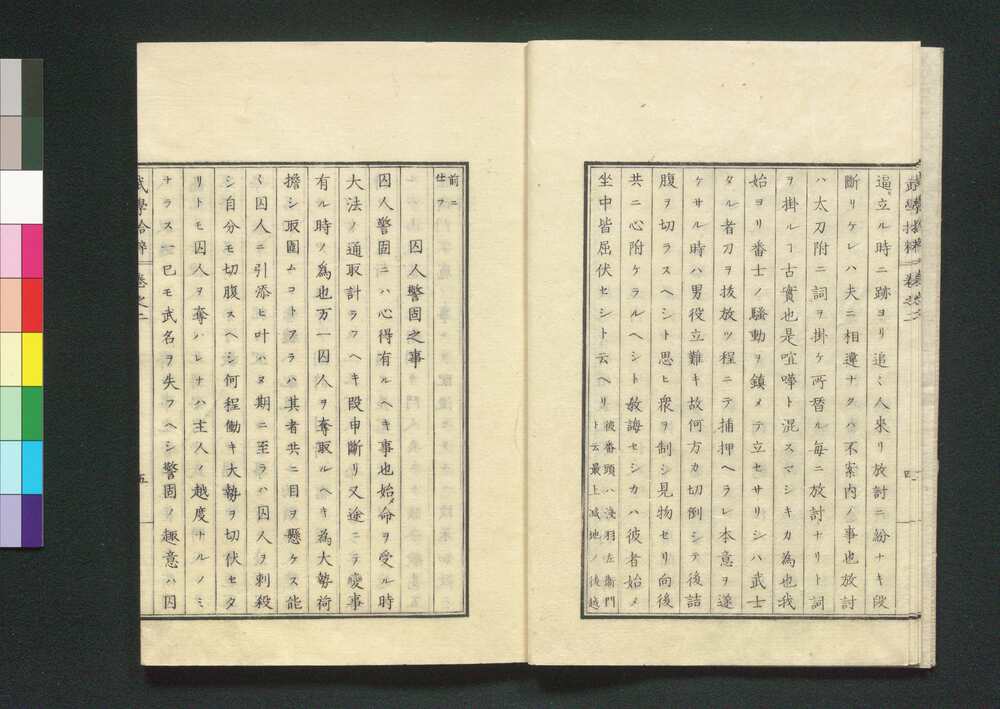 逼立ル時ニ跡ヨリ追ミ人來リ放討ニ紛ナキ段
斷リケレハ夫ニ相違ナクハ不案内ノ事也放討
ハ太刀附ニ詞ヲ掛ケ所替ル毎ニ放討ナリト詞
ヲ掛ルヿ古實也是喧嘩ト混スマシキカ為也我
始ヨリ番士ノ騒動ヲ鎮メテ立セサリシハ武士
タル者刀ヲ抜放ツ程ニテ捕押ヘラレ本意ヲ遂
ケサル時ハ男役立難キ故何方カ切倒シテ後詰
腹ヲ切ラスヘシト思ヒ衆ヲ制シ見物セリ向後
共ニ心附ケラルヘシト教誨セシカハ彼者始メ
坐中皆屈伏セシト云ヘリ
彼番頭ハ淺羽左衛門
ト云最上減地ノ後越
前ニ
仕フ
囚人警固之事
囚人警固ニハ心得有ルヘキ事也始メ命ヲ受ル時
大法ノ通取計ラフヘキ段申斷リ又途ニテ變事
有ル時ノ為也万一囚人ヲ奪取ルヘキ為大勢荷
擔シ取圍ムコトアラハ其者共ニ目ヲ懸ケス能
く囚人ニ引添ヒ叶ハヌ期ニ至ラハ囚人ヲ刺殺
シ自分モ切腹スヘシ何程働キ大勢ヲ切伏セタ
リトモ囚人ヲ奪ハレナハ主人ノ越度ナルノミ
ナラス己モ武名ヲ失フヘシ警固ノ趣意ハ囚
武學拾粹 卷之二
五